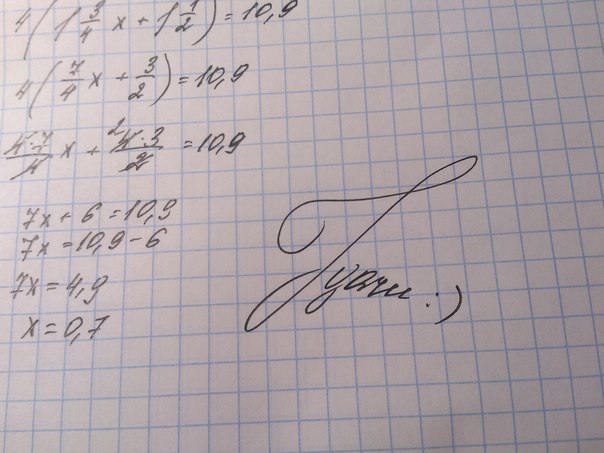 4(1 3/4 x + 1 1/2) = 10,9
4(7/4 x + 3/2) = 10,9
4·7/4 x + 2 4·3/2 = 10,9
7x + 6 = 10,9
7x = 10,9 - 6
7x = 4,9
x = 0,7
Удачи :)